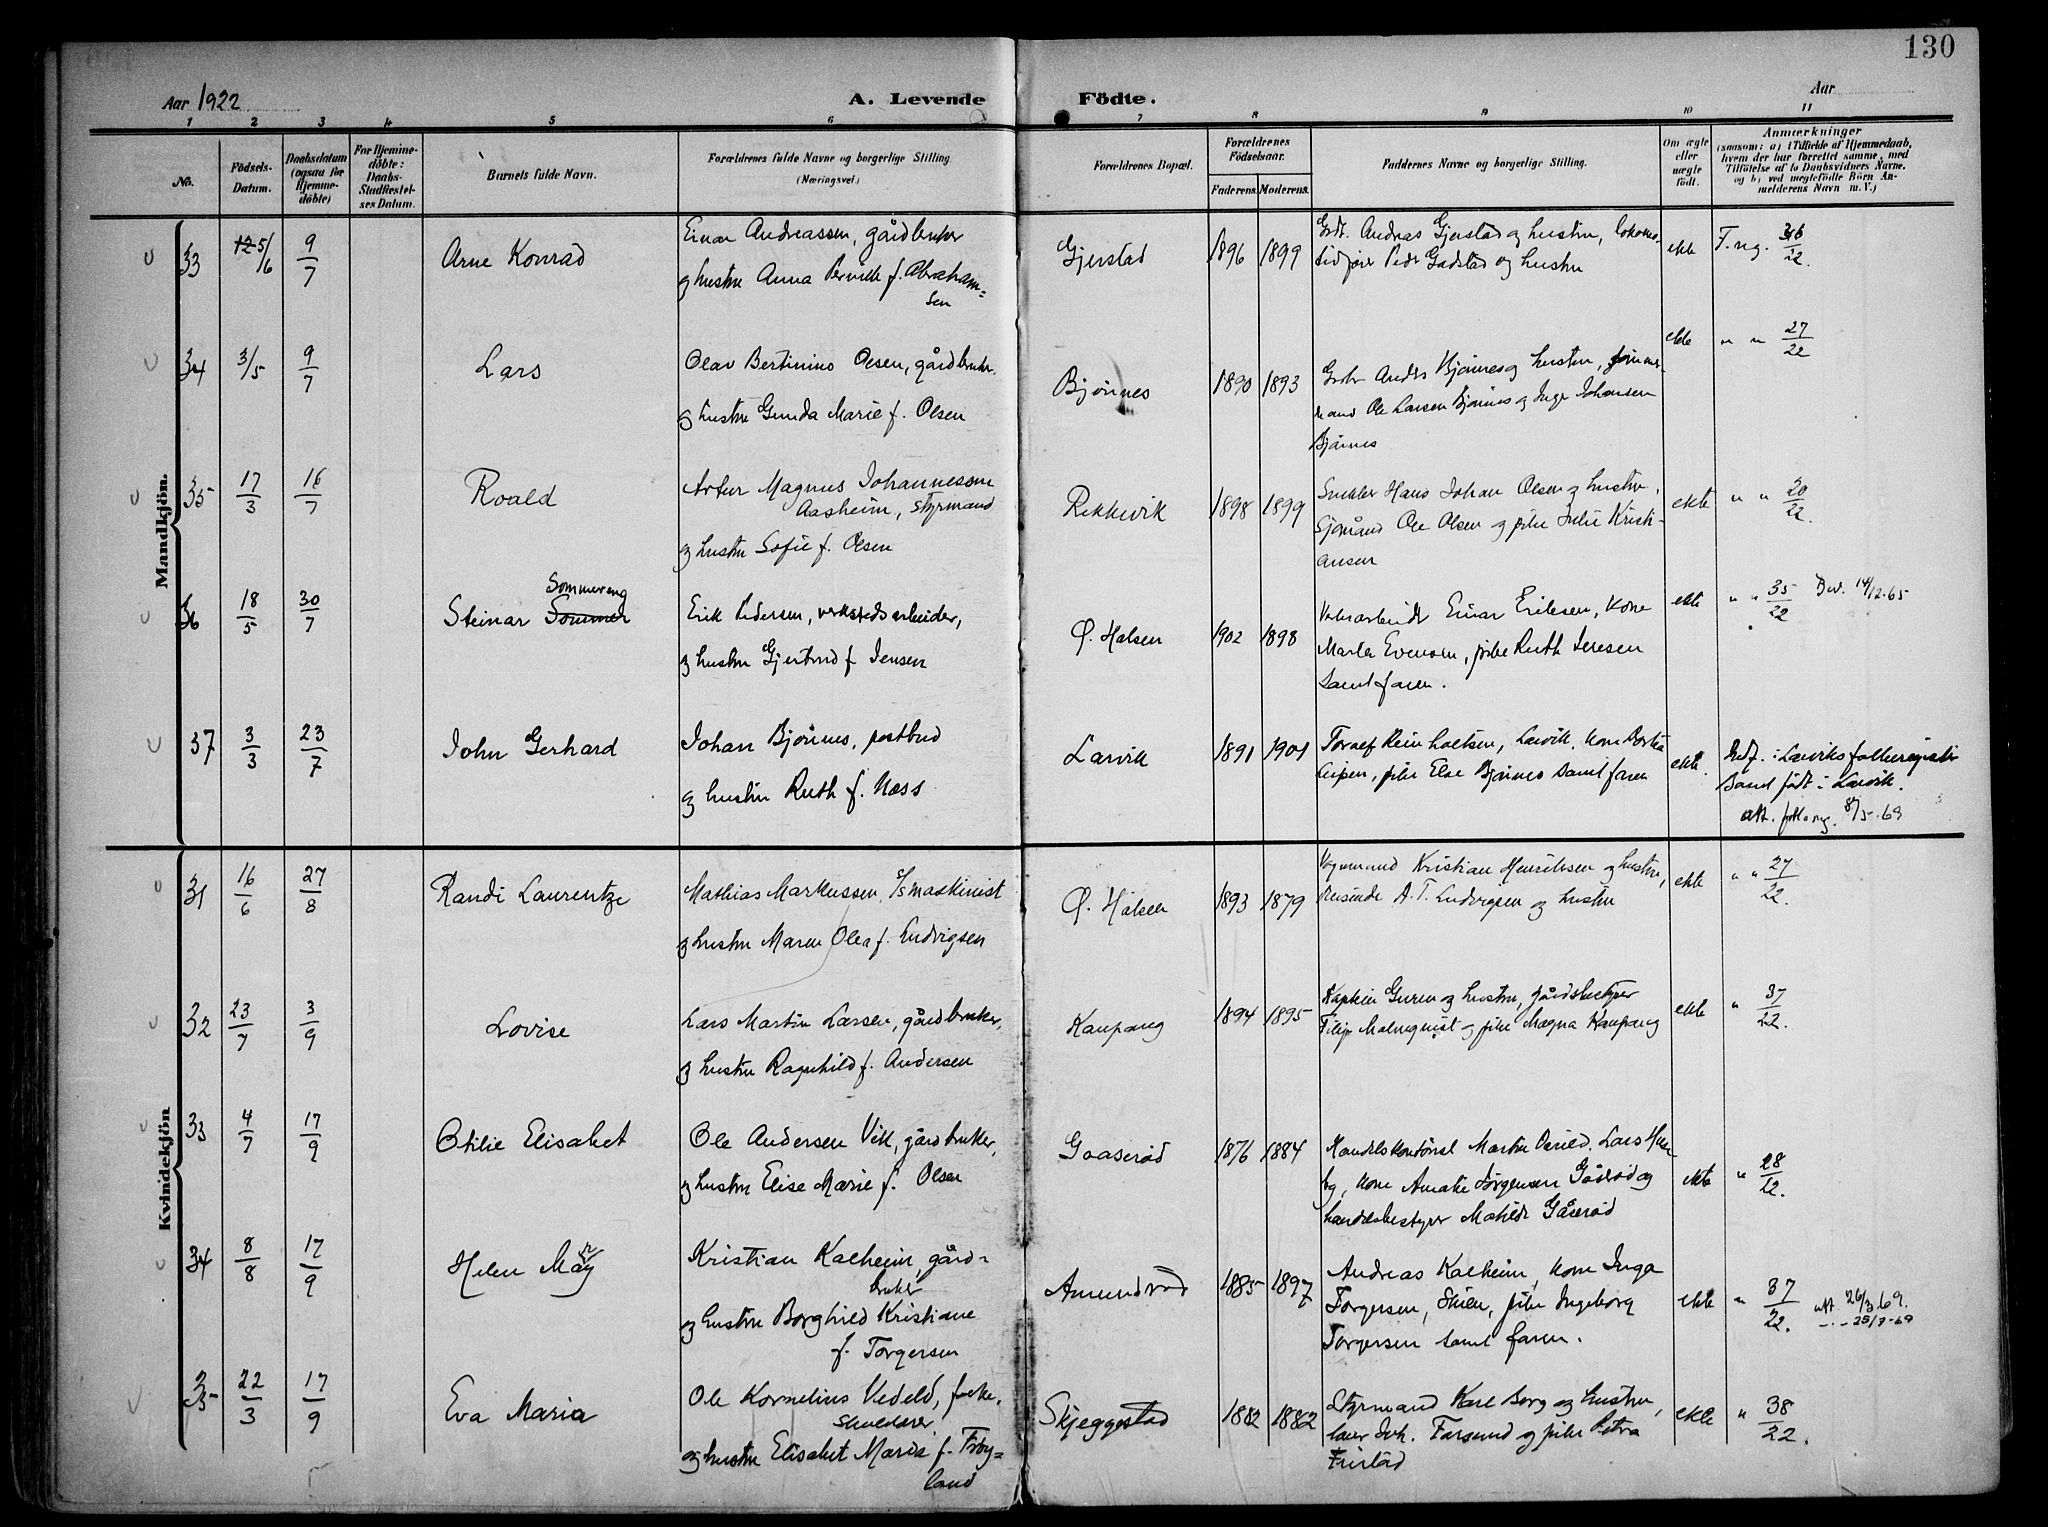 130
Aar 1922
A. Levende Födte.
Aar
1 2 3 4 5 6 7 8 9 10 11
No.
Födsels-Datum.
Daabsdatum (ogsaa for Hjemme-döbte)
For Hjemme-döbte: Daabs-Stadfæstel-ses Datum.
Barnets fulde Navn.
Forældrenes fulde Navne og borgerlige Stilling. (Næringsvei.)
Forældrenes Bopæl.
Forældrenes Födselsaar.
Faderens. Moderens.
Faddernes Navne og borgerlige Stilling.
Om ægte eller uægte födt.
Anmærkninger
(saasom: a) i Tilfælde af Hjemmedaab, hvem der har forrettet samme, med Tilföielse af to Daabsvidners Navne. og b) ved uægtefödte Börn An-melderens Navn m. V.)
Mandkjön.
33 5/6 9/7 Arne Konrad
Einar Andreassen, gårdbruker
og hustru Anna Pernille f. Abraham=
sen
Gjerstad 1896 1899
Grdt. Andreas Gjerstad og hustru,
og hustru
ekte T. ng. 22.
34 3/5 9/7 Lars
Olav Bertinius Olsen, gårdbruker
og hustru Gunda Marie f. Olsen
Bjönnes 1890 1893
Anders Bjönnes og hustru,
Ole Larsen Bjönnes og Inga Johansen
Bjönnes
ekte " " 27/22
35 17/3 16/7 Roald
Artur Magnus Johannessen
Aasheim, styrmand
og hustru Sofie f. Olsen
Rekkevik 1898 1899
Snekker Hans Johan Olsen og hustru,
Sjømand Ole Olsen og pike Julie Kristi-
ansen
ekte " " 20/22.
36 18/5 30/7 Steinar Sommer Sommereng
Erik Pedersen, verkstedsarbeider,
og hustru Gjertrud f. Jensen
Ø. Halsen 1902 1898
Einar Eriksen, kone
Marta Evensen, pike Ruth Jensen
samt faren.
ekte " " 35/22 Bev. 14/12.65
37 3/3 23/7 John Gerhard
Johan Bjönnes, postbud
og hustru Ruth f. Næss
Larvik 1891 1901
Toralf Reinholtsen, Larvik, kone
pike Else Bjönnes samt faren
ekte. Indf. i Larviks folkeregister
Barnet födt i Larvik.
att. 8/5.69
Kvindekjön
31 16/6 27/8 Randi Laurentze
Mathias Markussen, S/S maskinist
og hustru Maren Olea f. Ludvigsen
Ø. Halsen 1893 1879
Kristian Henriksen og hustru,
Reisende A. T. Ludvigsen og hustru
ekte " " 27/22.
32 23/7 3/9 Lovise
Lars Martin Larsen, gårdbruker,
og hustru Ragnhild f. Andersen
Kaupang 1894 1895
Kaptein Guren og hustru, gårdsbestyrer
Filip Malmquist og pike Magna Kaupang
ekte " 37/22.
33 4/7 17/9 Otilie Elisabet
Ole Andersen Vik, gårdbruker,
og hustru Elise Marie f. Olsen
Gaaserød 1876 1884
Martin Lars
kone Amalie Jørgensen Gåserød og
handelsbestyrer Matilde Gåserød
ekte " 28/22.
34 8/8 17/9 Helen May
Kristian Kalheim, gård=
bruker
og hustru Borghild Kristiane
f. Torgersen
Amundrød 1885 1897
Andreas Kalheim, kone Inga
Torgersen, Skien, pike Ingeborg
Torgersen samt faren.
ekte " 37/22. att. 26/3 69.
- " - 25/7-69
35 22/3 17/9 Eva Maria
Ole Kornelius Vedeld,
og hustru Elisabet Maria f. Frøy=
land
Skjeggestad 1882 1882
Styrmand Karl Berg og hustru,
Joh. Farsund og pike Petra
Fristad
ekte " 38/22.